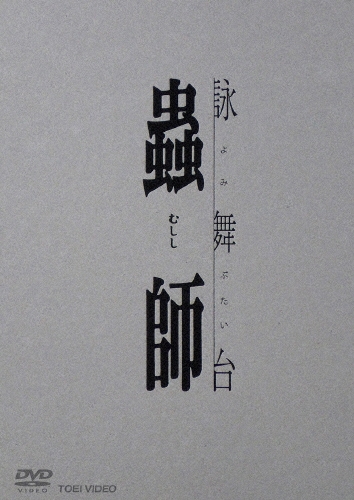 詠舞台
よみぶたい
蟲師
むしし
DVD
VIDEO
TOEI VIDEO